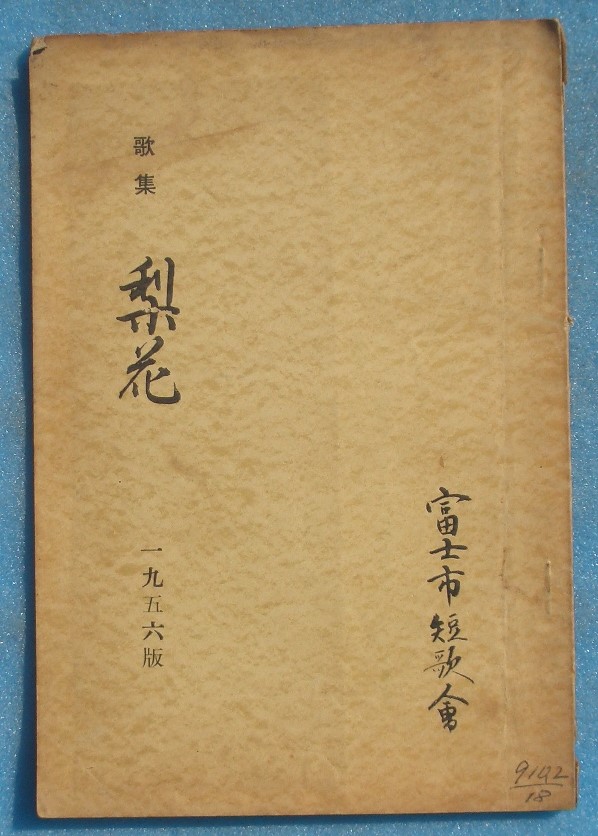 歌集
梨花
一九五六版
富士市短歌會
9192
18